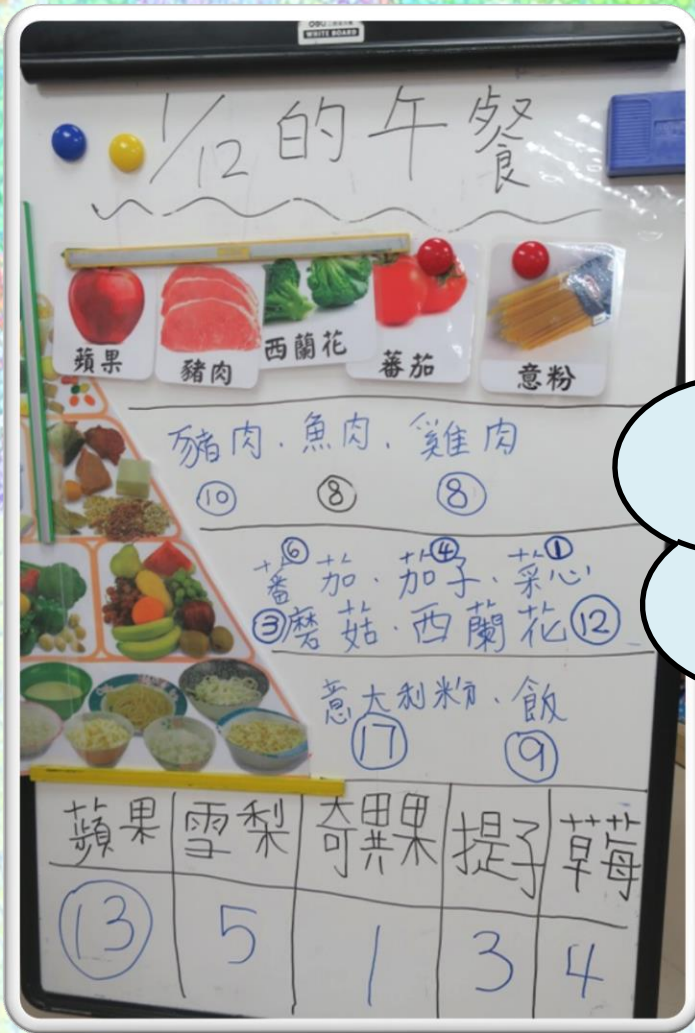 WRITE BOARD
1/12的午餐
蘋果 豬肉 西蘭花 蕃茄 意粉
豬肉、魚肉、雞肉
⑩ ⑧ ⑧
⑥ ④ ①
蕃茄、茄子、菜心
③蘑菇、西蘭花⑫
意大利粉、飯
⑰ ⑨
蘋果 雪梨 奇異果 提子 草莓
⑬ 5 1 3 4